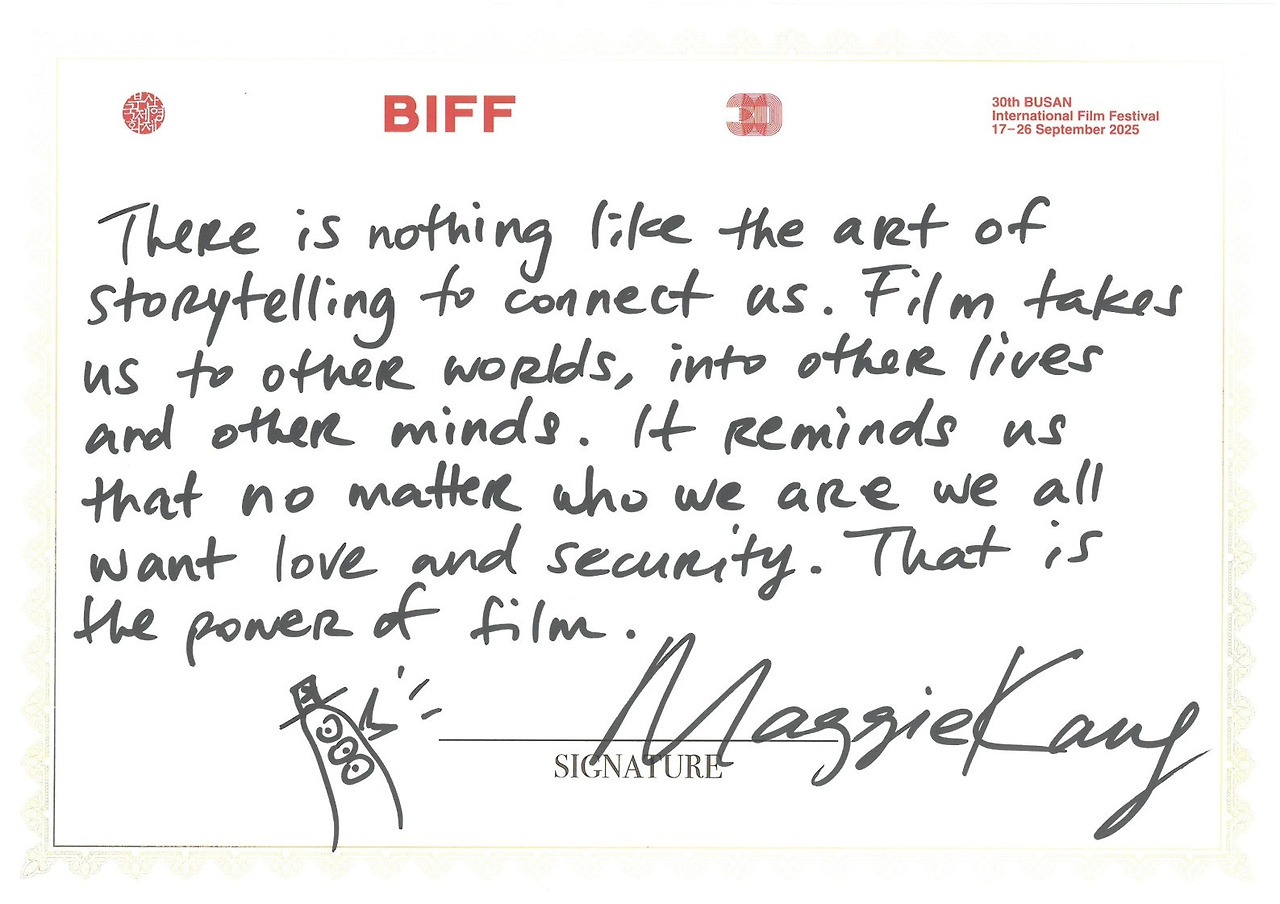 부산국제영화제
BIFF
30
30th BUSAN
International Film Festival
17–26 September 2025
There is nothing like the art of
storytelling to connect us. Film takes
us to other worlds, into other lives
and other minds. It reminds us
that no matter who we are we all
want love and security. That is
the power of film.
Maggie Kang
SIGNATURE